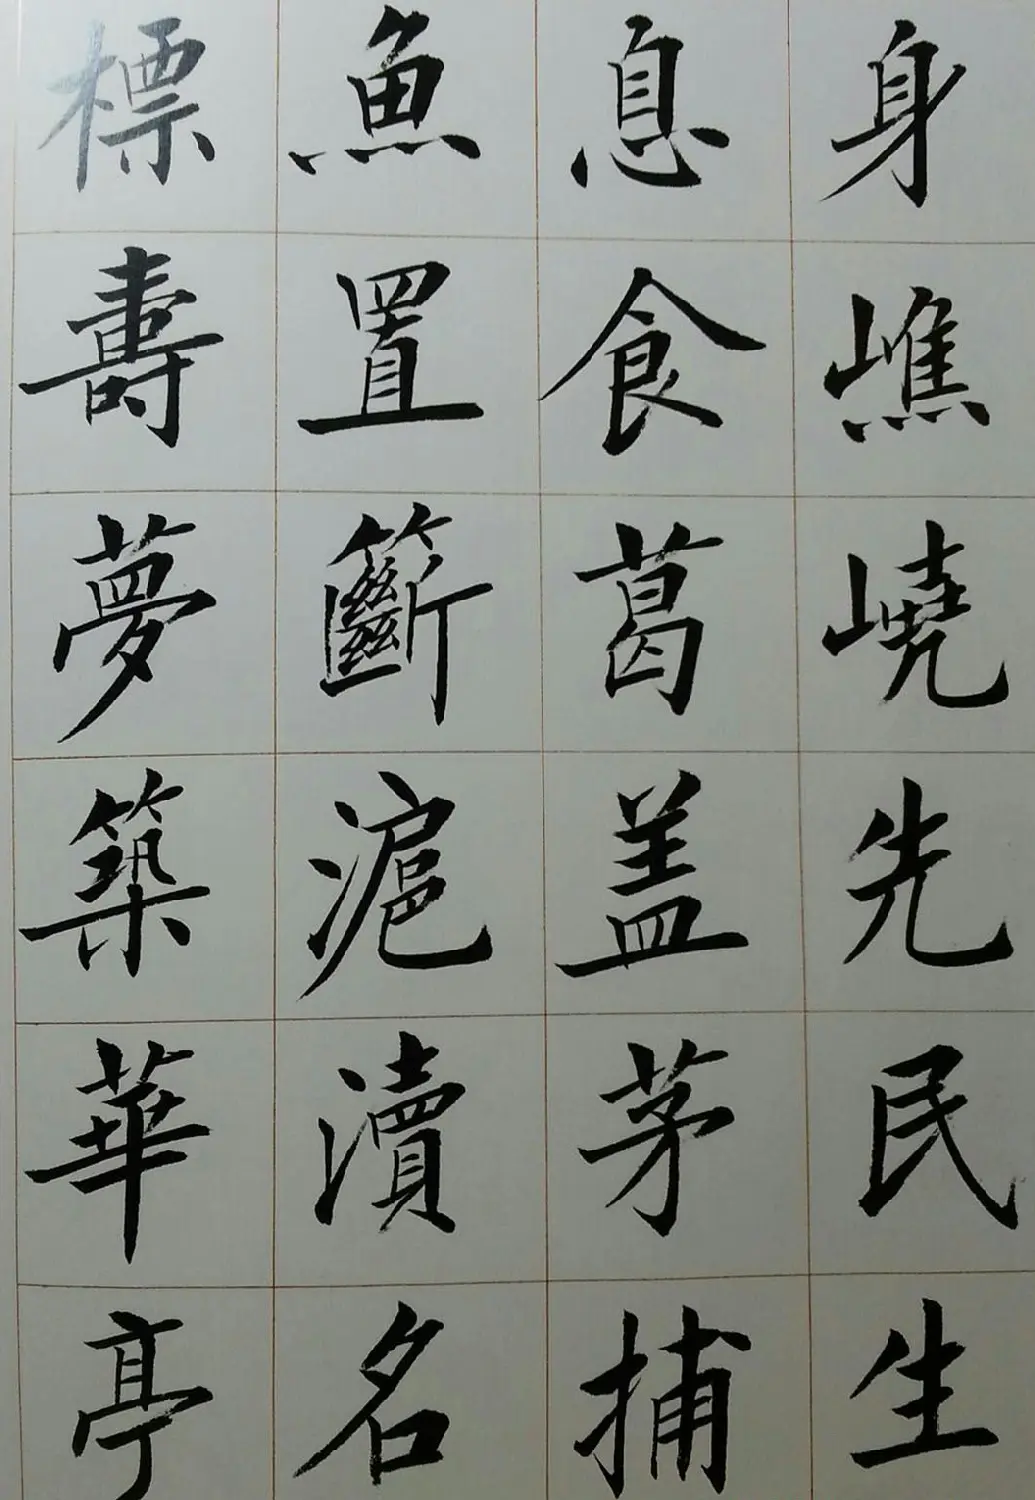 身嶕嶢先民生
息食葛盖茅捕
魚置籪滬瀆名
標壽夢築華亭